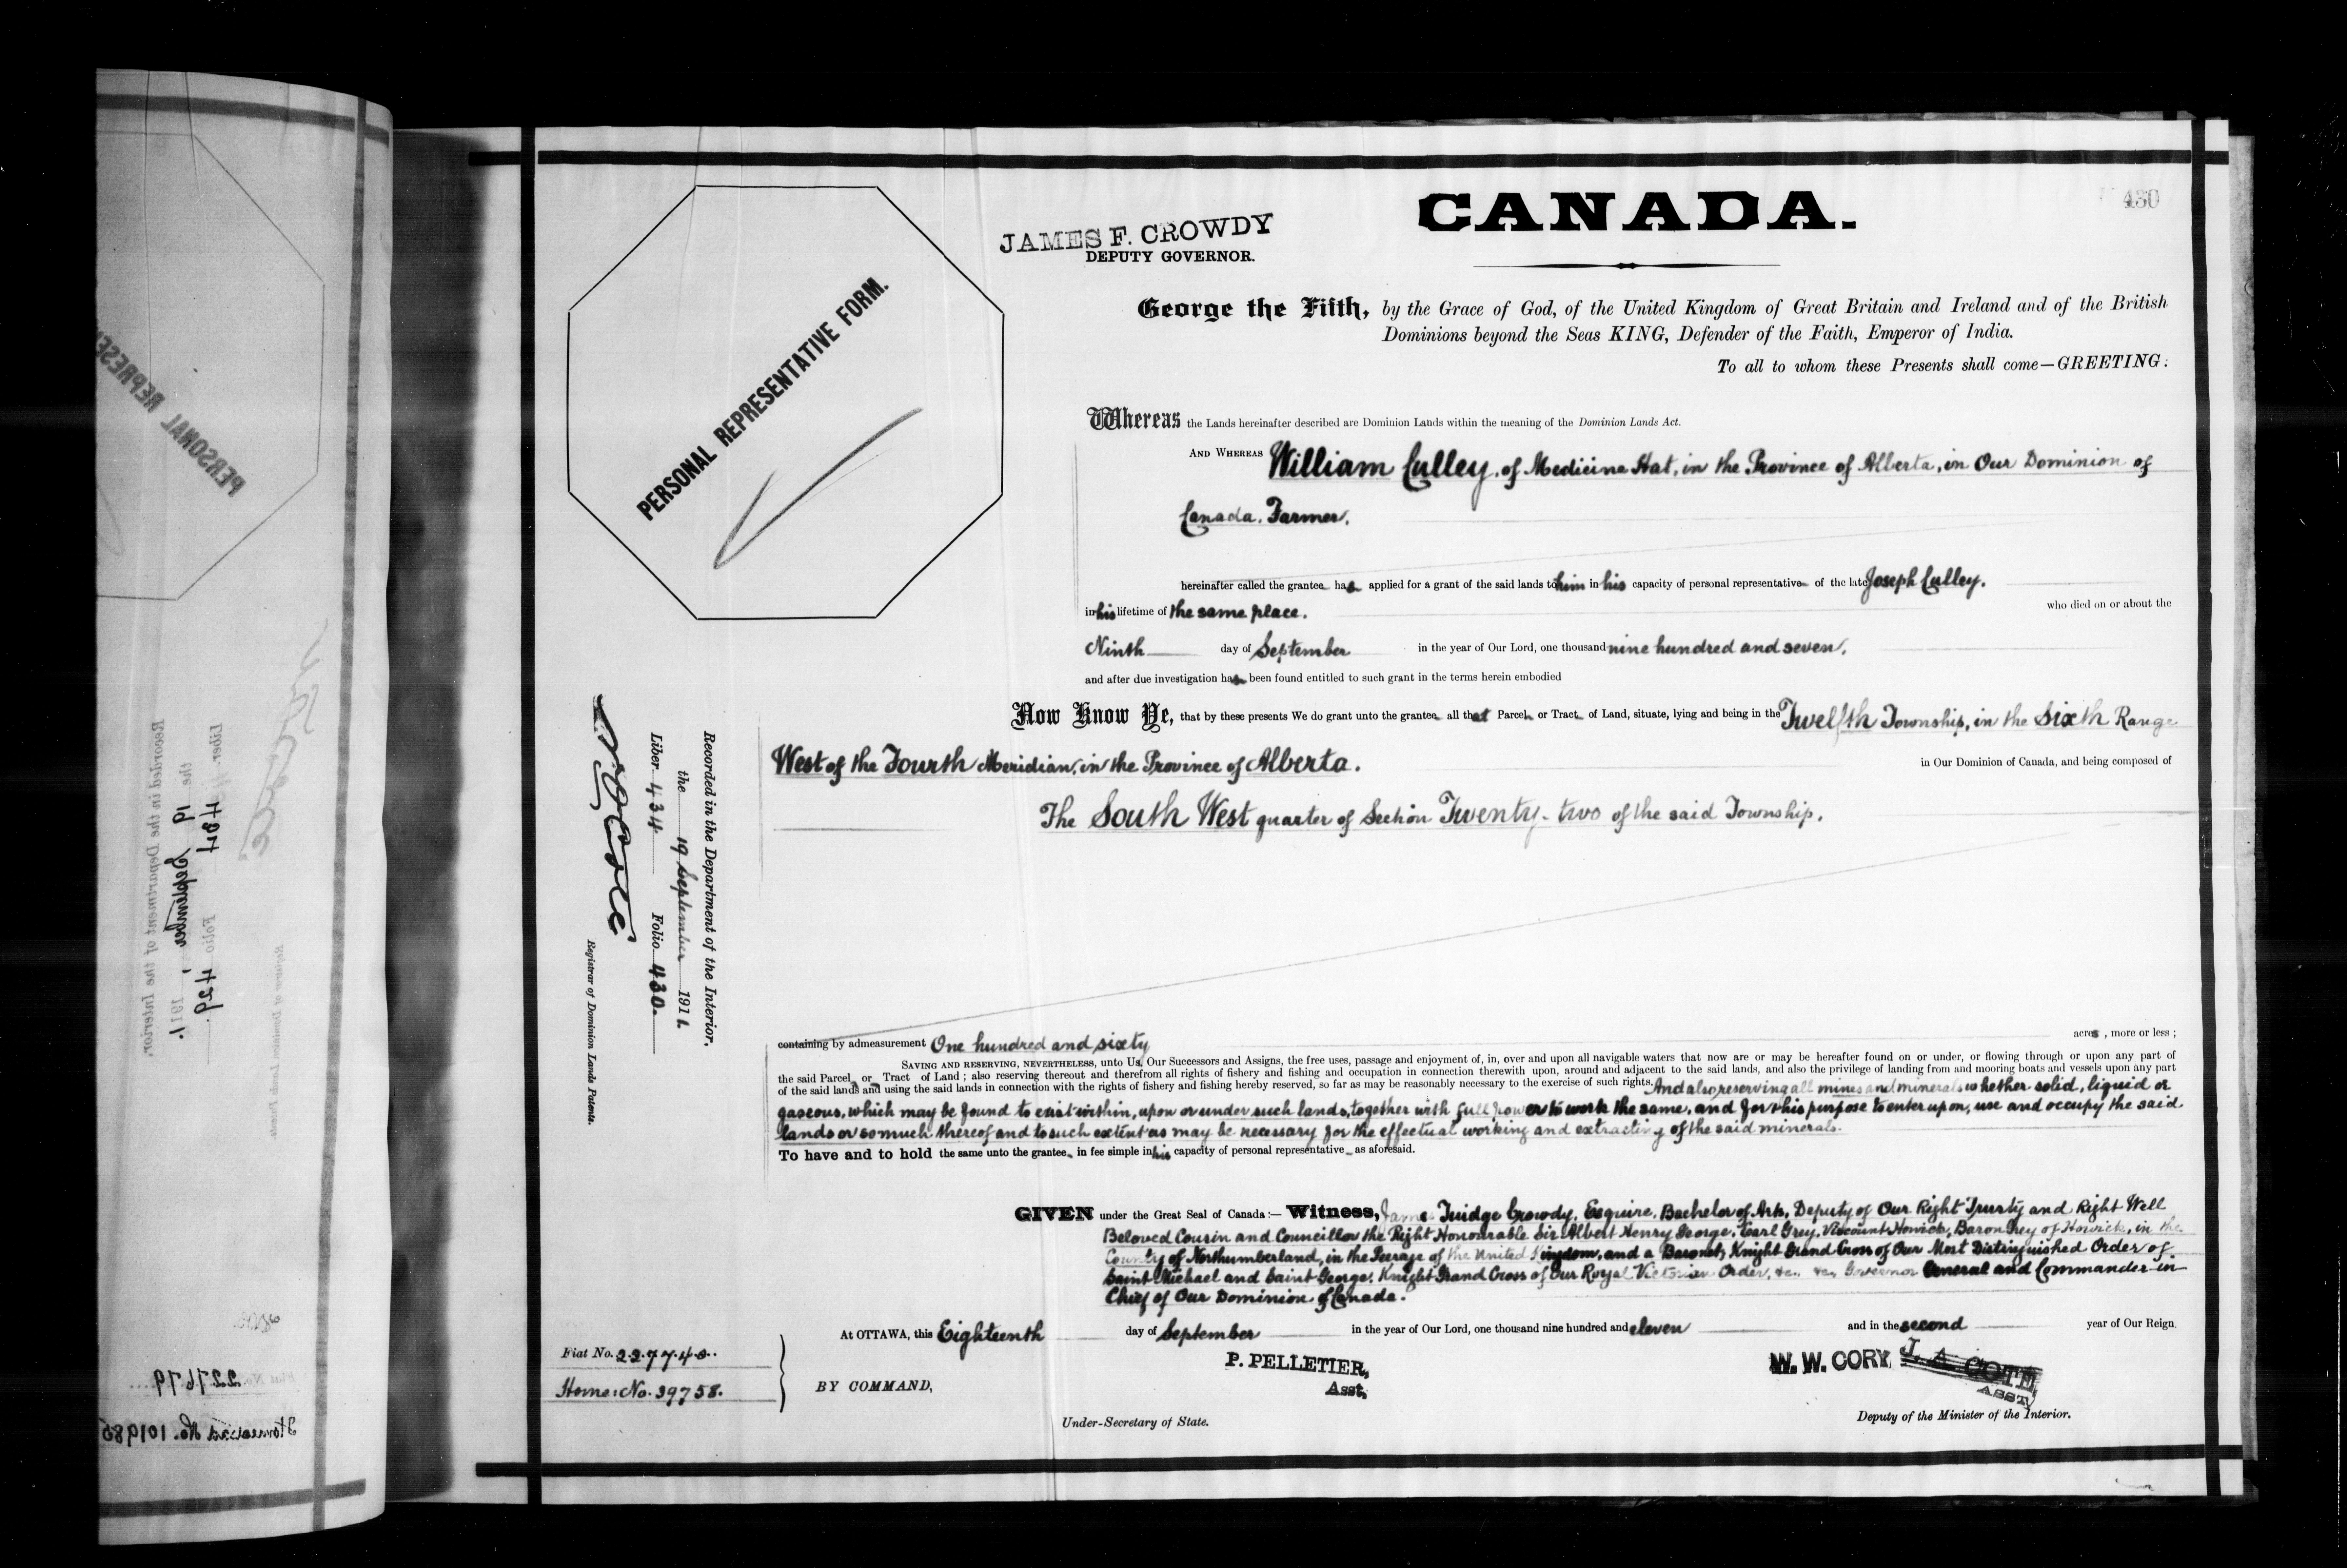 430
CANADA.
JAMES F. CROWDY
DEPUTY GOVERNOR.
PERSONAL REPRESENTATIVE FORM.
George the Fifth, by the Grace of God, of the United Kingdom of Great Britain and Ireland and of the British
Dominions beyond the Seas KING, Defender of the Faith, Emperor of India.
To all to whom these Presents shall come—GREETING:
Whereas the Lands hereinafter described are Dominion Lands within the meaning of the Dominion Lands Act.
AND WHEREAS William Culley, of Medicine Hat, in the Province of Alberta, in Our Dominion of
Canada. Farmer.
hereinafter called the grantee has applied for a grant of the said lands to him in his capacity of personal representative of the late Joseph Culley.
in his lifetime of the same place. who died on or about the
Ninth day of September in the year of Our Lord, one thousand nine hundred and seven.
and after due investigation has been found entitled to such grant in the terms herein embodied
Now Know Ye, that by these presents We do grant unto the grantee all that Parcel or Tract of Land, situate, lying and being in the Twelfth Township, in the Sixth Range
West of the Fourth Meridian, in the Province of Alberta. in Our Dominion of Canada, and being composed of
The South West quarter of Section Twenty-two of the said Township.
containing by admeasurement One hundred and sixty acres, more or less;
SAVING AND RESERVING, NEVERTHELESS, unto Us, Our Successors and Assigns, the free uses, passage and enjoyment of, in, over and upon all navigable waters that now are or may be hereafter found on or under, or flowing through or upon any part of
the said Parcel or Tract of Land; also reserving thereout and therefrom all rights of fishery and fishing and occupation in connection therewith upon, around and adjacent to the said lands, and also the privilege of landing from and mooring boats and vessels upon any part
of the said lands and using the said lands in connection with the rights of fishery and fishing hereby reserved, so far as may be reasonably necessary to the exercise of such rights. And also reserving all mines and minerals whether solid, liquid or
gaseous, which may be found to exist within, upon or under such lands, together with full power to work the same, and for this purpose to enter upon, use and occupy the said
lands or so much thereof and to such extent as may be necessary for the effectual working and extracting of the said minerals.
To have and to hold the same unto the grantee in fee simple in his capacity of personal representative as aforesaid.
GIVEN under the Great Seal of Canada:— Witness, James Fuidge Crowdy, Esquire, Bachelor of Arts, Deputy of Our Right Trusty and Right Well
Beloved Cousin and Councillor the Right Honourable Sir Albert Henry George, Earl Grey, Viscount Howick, Baron Grey of Howick, in the
County of Northumberland, in the Peerage of the United Kingdom, and a Baronet, Knight Grand Cross of Our Most Distinguished Order of
Saint Michael and Saint George, Knight Grand Cross of Our Royal Victorian Order, &c. &c. Governor General and Commander-in-
Chief of Our Dominion of Canada.
At OTTAWA, this Eighteenth day of September in the year of Our Lord, one thousand nine hundred and eleven and in the second year of Our Reign.
Fiat No. 227740.
Home: No. 39758.
BY COMMAND,
P. PELLETIER,
Asst.
Under-Secretary of State.
W. W. CORY
J. A. COTE,
ASST.
Deputy of the Minister of the Interior.
Recorded in the Department of the Interior,
the 19 September 1911.
Liber 434 Folio 430.
Registrar of Dominion Lands Patents.
PERSONAL REPRESE
Recorded in the Department of the Interior,
the 19 September, 1911.
Liber 434 Folio 429.
227679
Homestead No. 101985